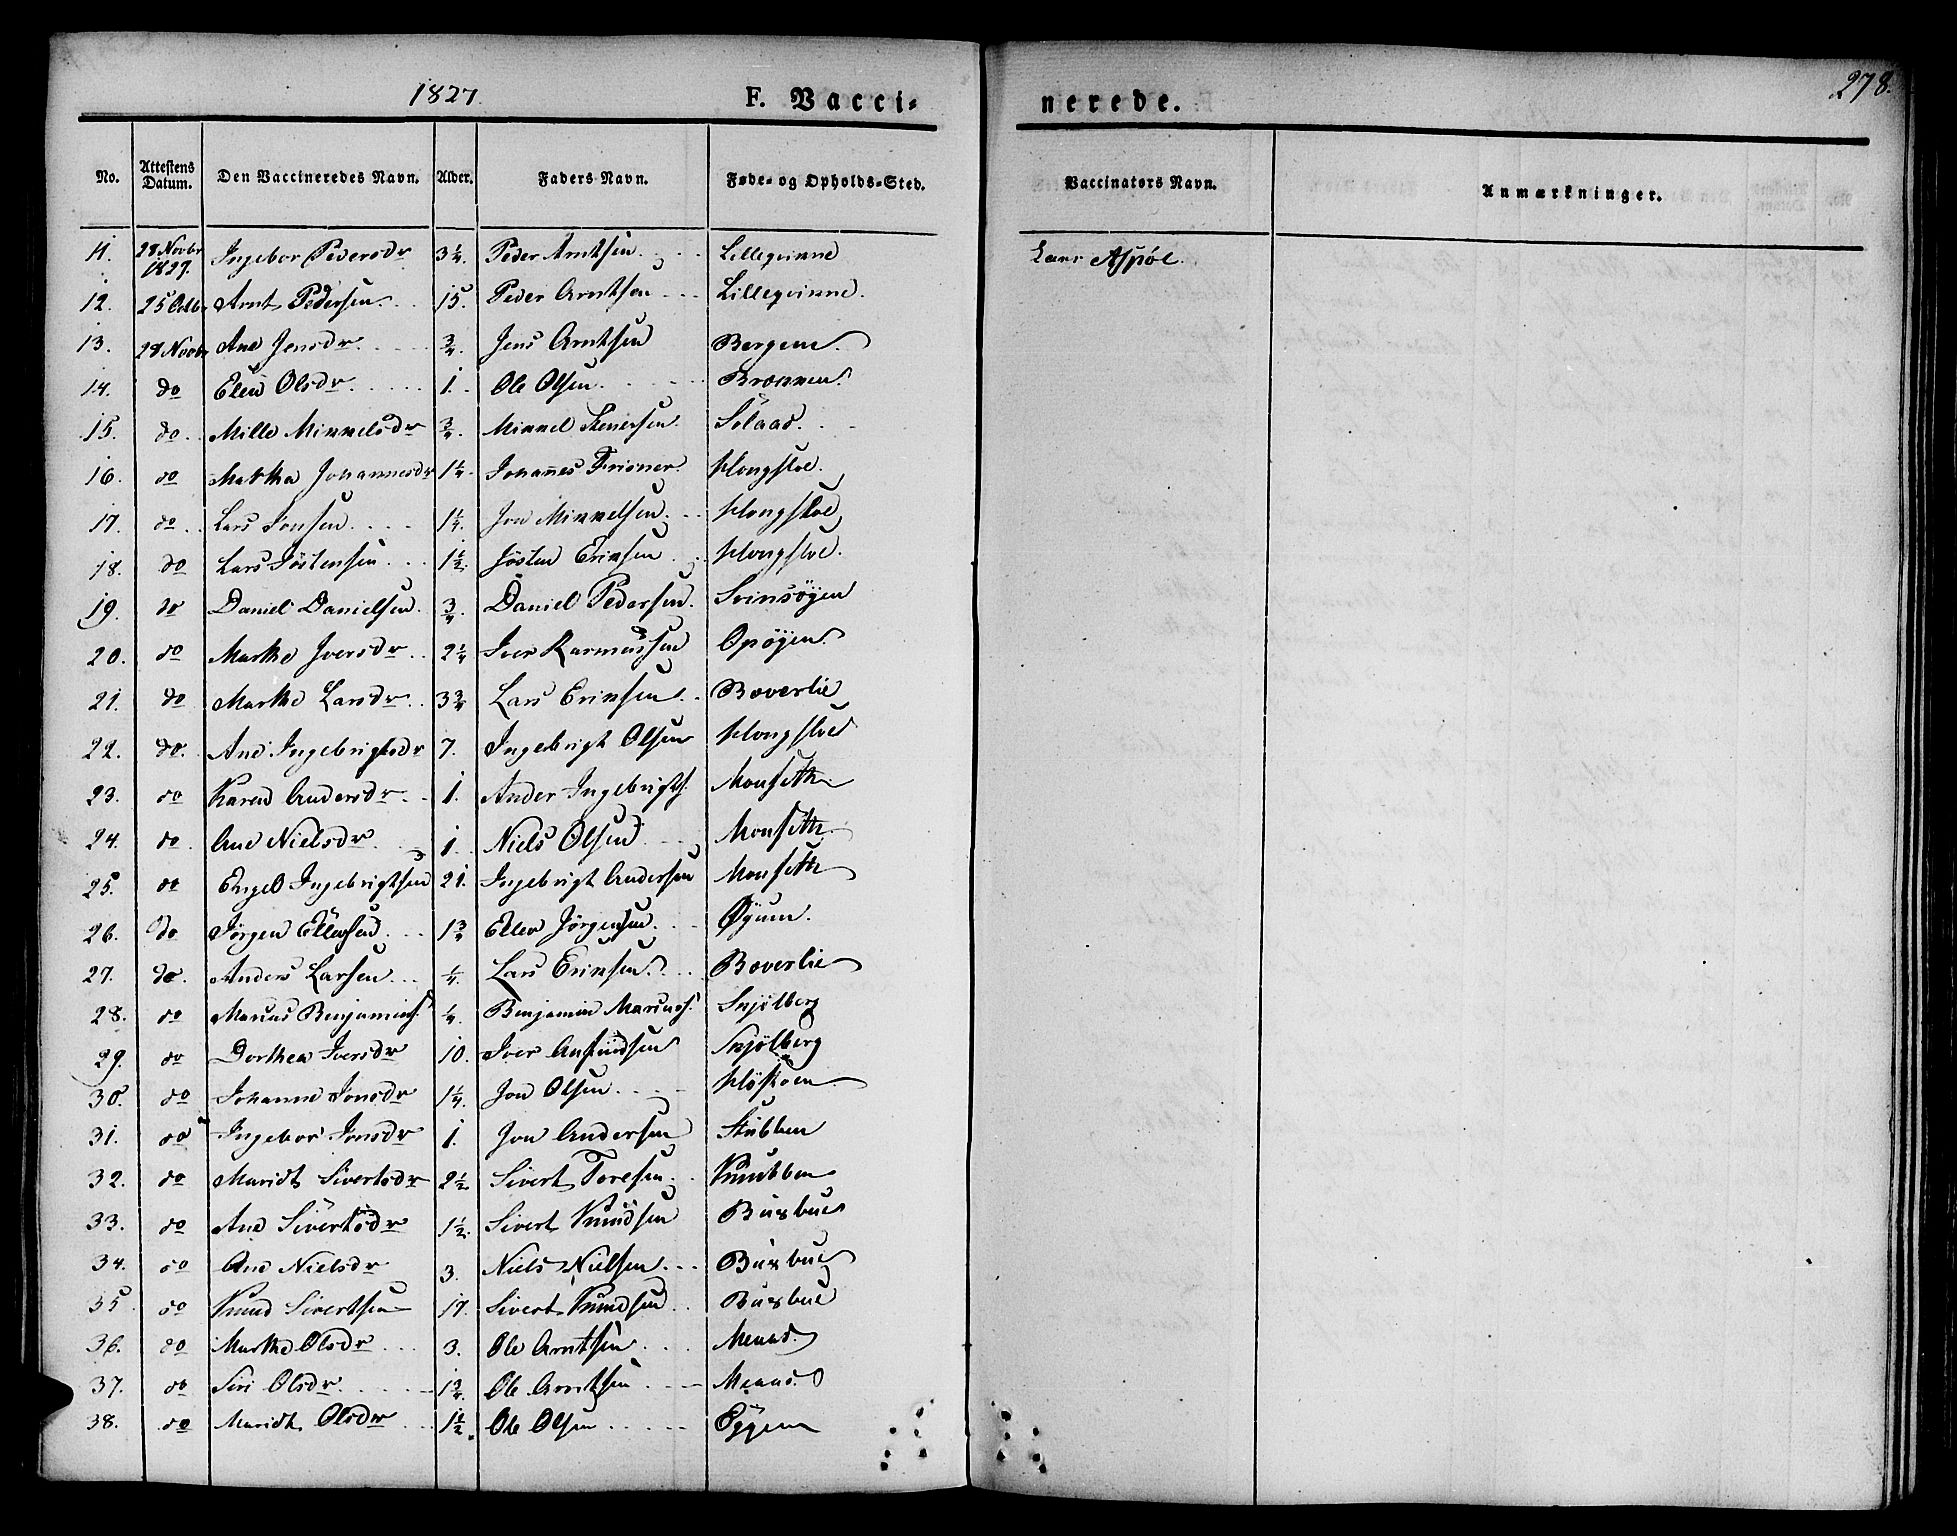 1827.
F. Vacci-
nerede.
278.
No. Attestens Datum. Den Vaccineredes Navn. Alder. Faders Navn. Føde- og Opholds-Sted. Vaccinators Navn. Anmærkninger.
11. 28 Novbr 1827. Ingebor Pedersdr 3 1/4 Peder Arntsen Lillegvinne Lars Aspøe
12. 25 Octb. Arnt Pedersen 15. Peder Arntsen Lillegvinne.
13. 28 Novbr Ane Jensdr. 3/4. Jens Arntsen Bergene.
14. do Elen Olsdr 1. Ole Olsen Brønnen.
15. do. Mille Mikkelsdr 3/4. Mikkel Stenersen Solaas.
16. do Marthe Johannesdr 1 1/4. Johannes Frisner. Klongsloe.
17. do Lars Jonsen 1 1/4. Jon Mikkelsen. Klongsloe
18. do Lars Jöstensen 1 1/2. Jösten Eriksen Klongsloe.
19. do Daniel Danielsen 3/4. Daniel Pedersen. Svinsöyen
20. do Marthe Iversdr 2 1/4 Iver Rasmussen Opöyen.
21. do Marthe Larsdr 3 3/4 Lars Eriksen Boverlie
22. do. Ane Ingebrigtsdr 7. Ingebrigt Olsen Klongsloe
23. do Karen Andersdr 1. Ander Ingebrigts. Monseth
24. do. Ane Nielsdr 1 Niels Olsen Monseth
25. do Engel Ingebrigtsen 21. Ingebrigt Andersen Monseth
26. do Jörgen Ellevsen 1 3/4 Ellev Jörgensen. Øyum.
27. do. Anders Larsen 1/4 Lars Eriksen. Boverlie
28. do Marcus Benjamins. 1/4. Benjamin Marcus. Snjölberg
29. do Dorthea Iversdr 10. Iver Amundsen Snjölberg
30. do Johanne Jonsdr 1 1/4. Jon Olsen
31. do Ingebor Jonsdr 1. Jon Andersen Stubben
32. do Maridt Sivertsdr 2 1/2 Sivert Toresen Knubben
33. do Ane Sivertsdr 1 1/2. Sivert Knudsen Büsbue
34. do Ane Nielsdr 3. Niels Nielsen Büsbue
35. do Knud Sivertsen 17. Sivert Knudsen Büsbue
36. do Marthe Olsdr 3. Ole Arntsen Meaas.
37. do Siri Olsdr. 1 3/4. Ole Arntsen Meaas.
38. do Maridt Olsdr 1 1/2. Ole Olsen Eggen